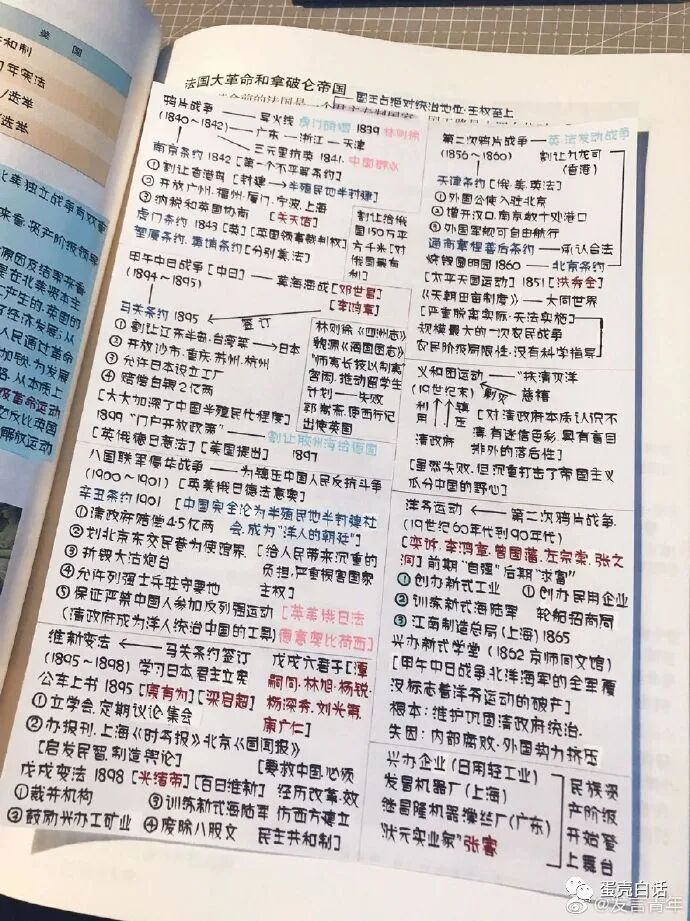 美国
和制
7年宪法
/选举
选举
北美独立战争
资产阶级领导
法国大革命和拿破仑帝国
国王占绝对统治地位·王权至上
鸦片战争
(1840~1842)
导火线 虎门销烟 1839 林则徐
广东—浙江—天津
三元里抗英 1841
南京条约 1842 [第一个不平等条约]
①割让香港岛 [封建→半殖民地半封建]
②开放广州·福州·厦门·宁波·上海
③纳税和英国协商 [关天培]
虎门条约 1843 [英][英国领事裁判权]
望厦条约·黄埔条约[分别美·法]
割让给俄
国150万平
方千米[对
俄国最有
利]
甲午中日战争[中日]—黄海海战[邓世昌]
(1894~1895) [李鸿章]
签订
马关条约 1895
①割让辽东半岛·台湾等→日本
②开放沙市·重庆·苏州·杭州
③允许日本设立工厂
④赔偿白银2亿两
[大大加深了中国半殖民化程度]
林则徐《四洲志》
魏源《海国图志》
"师夷长技以制夷"
容闳·推动留学生
计划—失败
郭嵩焘·使西行记
出使英国
1899 "门户开放政策"—割让胶州湾给德国
[英俄德日意法] [美国提出] 1897
八国联军侵华战争—为镇压中国人民反抗斗争
(1900~1901) [英美俄日德法意奥]
辛丑条约 1901 [中国完全沦为半殖民地半封建社
会·成为"洋人的朝廷"]
①清政府赔偿4.5亿两
②划北京东交民巷为使馆界
③拆毁大沽炮台
④允许列强士兵驻守要地
⑤保证严禁中国人参加反列强运动
(清政府成为洋人统治中国的工具)
[给人民带来沉重的
负担·严重损害国家
主权]
[英美俄日法
德意奥比荷西]
维新变法←马关条约签订
(1895~1898) 学习日本·君主立宪
公车上书 1895 [康有为][梁启超]
①立学会·定期议论·集会
②办报刊·上海《时务报》北京《国闻报》
[启发民智·制造舆论]
戊戌六君子[谭
嗣同·林旭·杨锐·
杨深秀·刘光第·
康广仁]
戊戌变法 1898 [光绪帝][百日维新]
①裁并机构 ③训练新式海陆军
②鼓励兴办工矿业 ④废除八股文
[要救中国·必须
经历改革·效
仿西方建立
民主共和制]
第二次鸦片战争—英·法发动战争
(1856~1860) 割让九龙司
(香港)
天津条约[俄·美·英法]
①外国公使入驻北京
②增开汉口·南京数十处港口
③外国军舰可自由航行
通商章程善后条约—承认合法
火烧圆明园 1860—北京条约
[太平天国运动] 1851 [洪秀全]
《天朝田亩制度》—大同世界
[严重脱离实际·无法实施]
规模最大的一次农民战争
农民阶级局限性·没有科学指导
义和团运动—"扶清灭洋"
(19世纪末) 剿灭 慈禧
利用 镇压
清政府
[对清政府本质认识不
清·有迷信色彩·具有盲目
排外的落后性]
[虽然失败·但沉重打击了帝国主义
瓜分中国的野心]
洋务运动←第二次鸦片战争
(19世纪60年代到90年代)
[奕䜣·李鸿章·曾国藩·左宗棠·张之
洞]前期"自强"后期"求富"
①创办新式工业 ①创办民用企业
②训练新式海陆军 轮船招商局
③江南制造总局(上海) 1865
兴办新式学堂(1862 京师同文馆)
[甲午中日战争·北洋海军的全军覆
没标志着洋务运动的破产]
根本:维护巩固清政府统治·
失因:内部腐败·外国势力挤压
兴办企业(日用轻工业)
发昌机器厂(上海)
继昌隆机器缫丝厂(广东)
"状元实业家"张謇
民族资
产阶级
开始登
上舞台
蛋壳白话
@发言青年